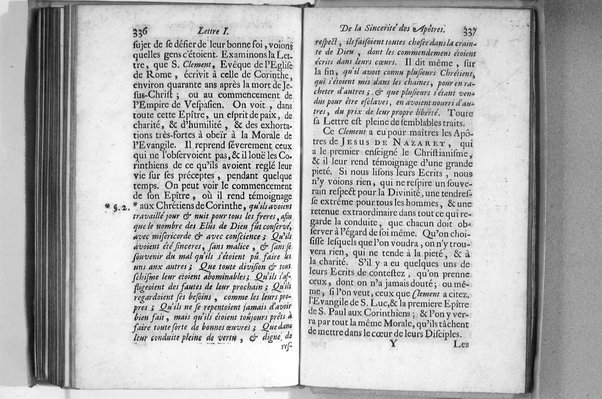 336 Lettre I.
sujet de se défier de leur bonne foi, voions
quelles gens c'étoient. Examinons la Let-
tre, que S. Clement, Evéque de l'Eglise
de Rome, écrivit à celle de Corinthe,
environ quarante ans après la mort de Je-
sus-Christ; ou au commencement de
l'Empire de Vespasien. On voit, dans
toute cette Epître, un esprit de paix, de
charité, & d'humilité, & des exhorta-
tions très-fortes à obeïr à la Morale de
l'Evangile. Il reprend séverement ceux
qui ne l'observoient pas, & il louë les Co-
rinthiens de ce qu'ils avoient reglé leur
vie sur ses préceptes, pendant quelque
temps. On peut voir le commencement
de son Epître, où il rend témoignage
* §. 2. * aux Chrêtiens de Corinthe, qu'ils avoient
travaillé jour & nuit pour tous les freres, afin
que le nombre des Elus de Dieu fût conservé,
avec misericorde & avec conscience; Qu'ils
avoient été sinceres, sans malice, & sans se
souvenir du mal qu'ils s'étoient pû faire les
uns aux autres; Que toute division & tout
schisme leur étoient abominables; Qu'ils s'af-
fligeoient des fautes de leur prochain; Qu'ils
regardoient ses besoins, comme les leurs pro-
pres; Qu'ils ne se repentoient jamais d'avoir
bien fait, mais qu'ils étoient toûjours prêts à
faire toute sorte de bonnes œuvres; Que dans
leur conduite pleine de vertu, & digne de
res-
De la Sincerité des Apôtres. 337
respect, ils faisoient toutes choses dans la crain-
te de Dieu, dont les commendemens étoient
écrits dans leurs cœurs. Il dit même, sur
la fin, qu'il avoit connu plusieurs Chrêtiens,
qui s'étoient mis dans les chaines, pour en ra-
cheter d'autres; & que plusieurs s'étant ven-
dus pour être esclaves, en avoient nourri d'au-
tres, du prix de leur propre liberté. Toute
sa Lettre est pleine de semblables traits.
Ce Clement a eu pour maîtres les Apô-
tres de JESUS DE NAZARET, qui
a le premier enseigné le Christianisme,
& il leur rend témoignage d'une grande
pieté. Si nous lisons leurs Ecrits, nous
n'y voions rien, qui ne respire un souve-
rain respect pour la Divinité, une tendres-
se extréme pour tous les hommes, & une
retenue extraordinaire dans tout ce qui re-
garde la conduite, que chacun doit ob-
server à l'égard de soi même. Qu'on choi-
sisse lesquels que l'on voudra, on n'y trou-
vera rien, qui ne tende à la pieté, & à
la charité. S'il y a eu quelques uns de
leurs Ecrits de contestez, qu'on prenne
ceux, dont on n'a jamais douté; ou mê-
me, si l'on veut, ceux que Clement a citez,
l'Evangile de S. Luc, & la premiere Epître
de S. Paul aux Corinthiens; & l'on y ver-
ra par tout la même Morale, qu'ils tâchent
de mettre dans le cœur de leurs Disciples.
Y Les